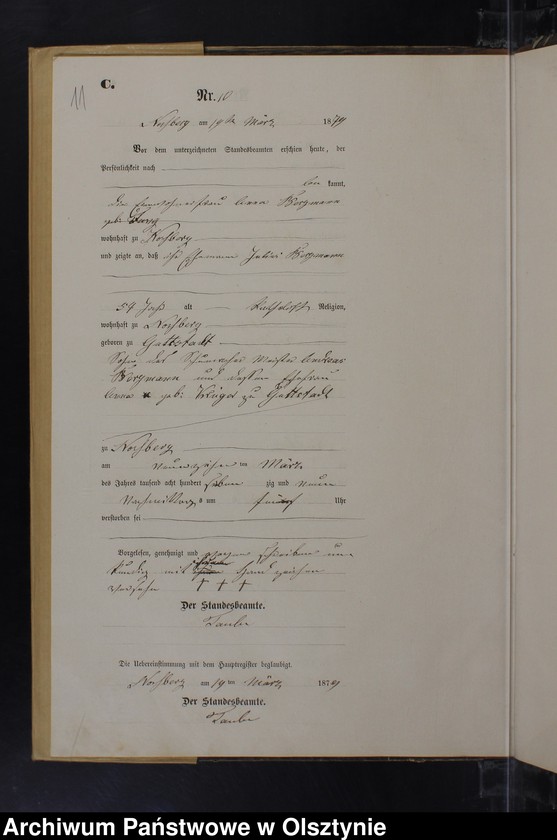 11
C.
Nr. 10
Nossberg am 19ten März 1879
Vor dem unterzeichneten Standesbeamten erschien heute, der
Persönlichkeit nach
be kannt,
die Einwohnerfrau Anna Bergmann
geb.
wohnhaft zu Nossberg
und zeigte an, daß ihr Ehemann Bergmann
59 Jahr alt katholisch Religion,
wohnhaft zu Nossberg
geboren zu Guttstadt
Sohn des Schumacher Meister Andreas
Bergmann und dessen Ehefrau
Anna geb. Krüger zu Guttstadt
zu Nossberg
am neunzehn ten März
des Jahres tausend acht hundert sieben zig und neun
Nachmittags um fünf Uhr
verstorben sei
Vorgelesen, genehmigt und wegen schreiben un=
kundig mit Hand zeichen
versehn † † †
Der Standesbeamte.
Die Uebereinstimmung mit dem Hauptregister beglaubigt.
Nossberg am 19ten März 1879
Der Standesbeamte.
Archiwum Państwowe w Olsztynie